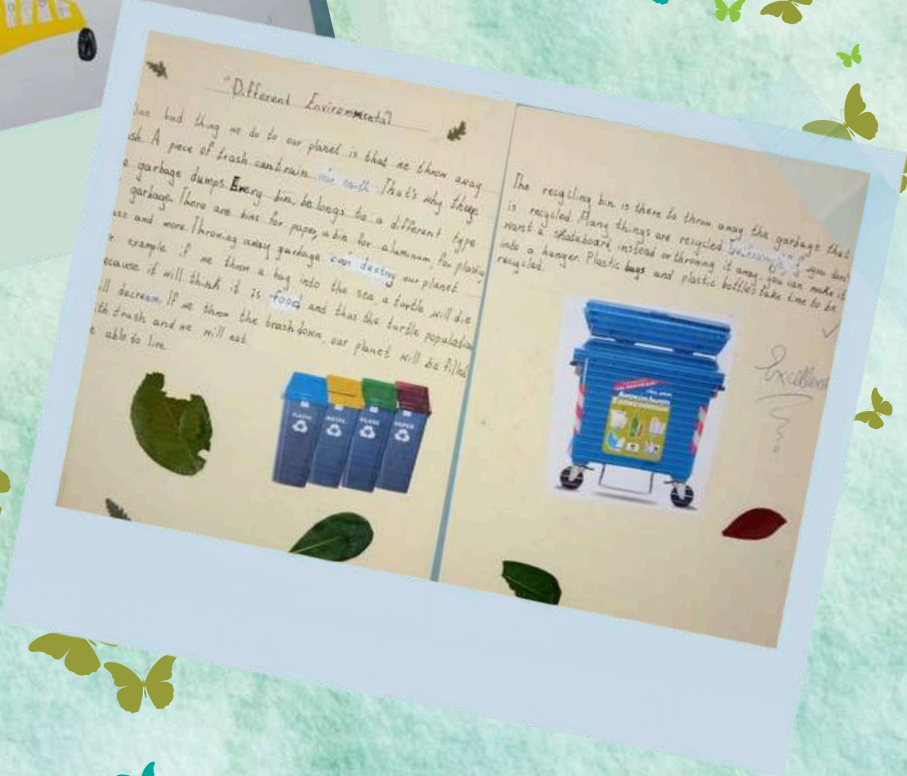 "Different Environmental"
One bad thing we do to our planet is that we throw away
A piece of trash can train our earth. That's why there
garbage dumps. Every bin belongs to a different type
garbage. There are bins for paper, a bin for aluminum, for plastic,
and more. Throwing away garbage can destroy our planet.
example if we throw a bag into the sea, a turtle will die
because it will think it is food and thus the turtle population
will decrease. If we throw the brash down, our planet will be filled
with trash and we will not
able to live.
PLASTIC
METAL
GLASS
PAPER
The recycling bin is there to throw away the garbage that
is recycled. Many things are recycled. For example if you don't
want a skateboard, instead or throwing it away, you can make it
into a hanger. Plastic bags and plastic bottles take time to be
recycled.
Excellent
Ανακύκλωση
Συσκευασιών